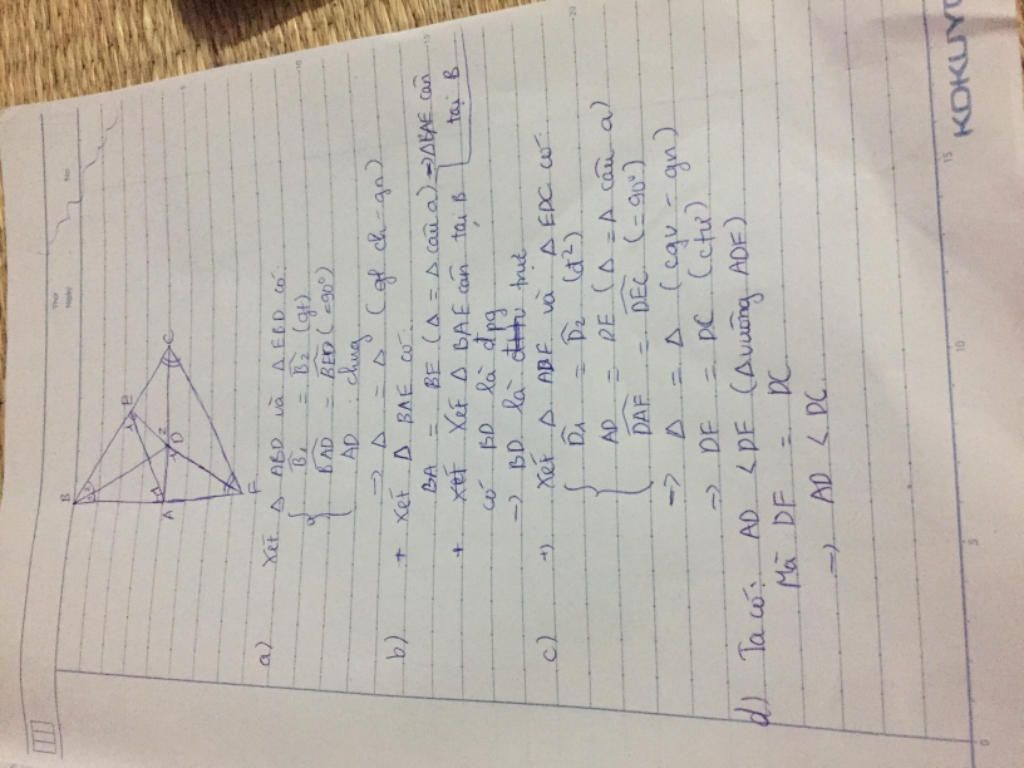 Thứ
Ngày
No
B
E
1
2
D
C
A
F
a) Xét Δ ABD và Δ EBD có:
B1 = B2 (gt)
BAD = BED (=90°)
AD chung
→ Δ = Δ (gt ch - gn)
b) + Xét Δ BAE có:
BA = BE (Δ = Δ câu a) → ΔBAE cân tại B
+ Xét Δ BAE cân tại B
có BD là đpg
→ BD là trực
c) +) Xét Δ ADF và Δ EDC có
D1 = D2 (đ²)
AD = DE (Δ = Δ câu a)
DAF = DEC (=90°)
→ Δ = Δ (cgv - gn)
→ DF = DC (ctư)
d) Ta có: AD < DF (Δ vuông ADF)
Mà DF = DC
→ AD < DC
0
5
10
15
10
15
20
KOKUYO